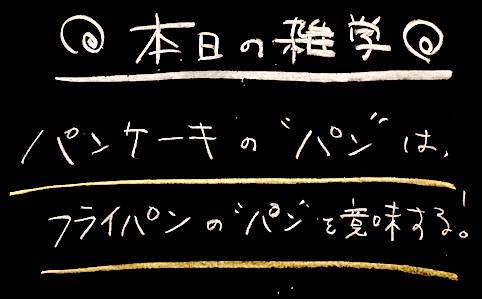 本日の雑学
パンケーキの"パン"は、
フライパンの"パン"を意味する!